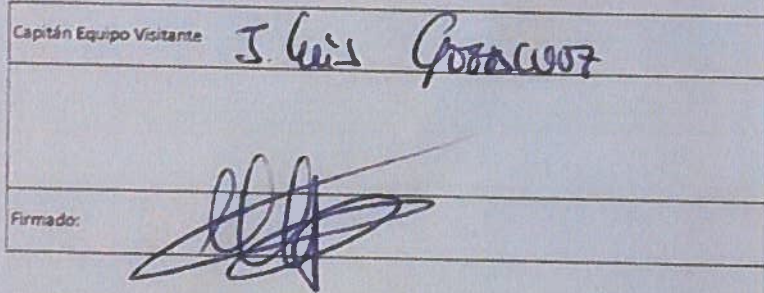 Capitán Equipo Visitante J. Luis
Firmado: